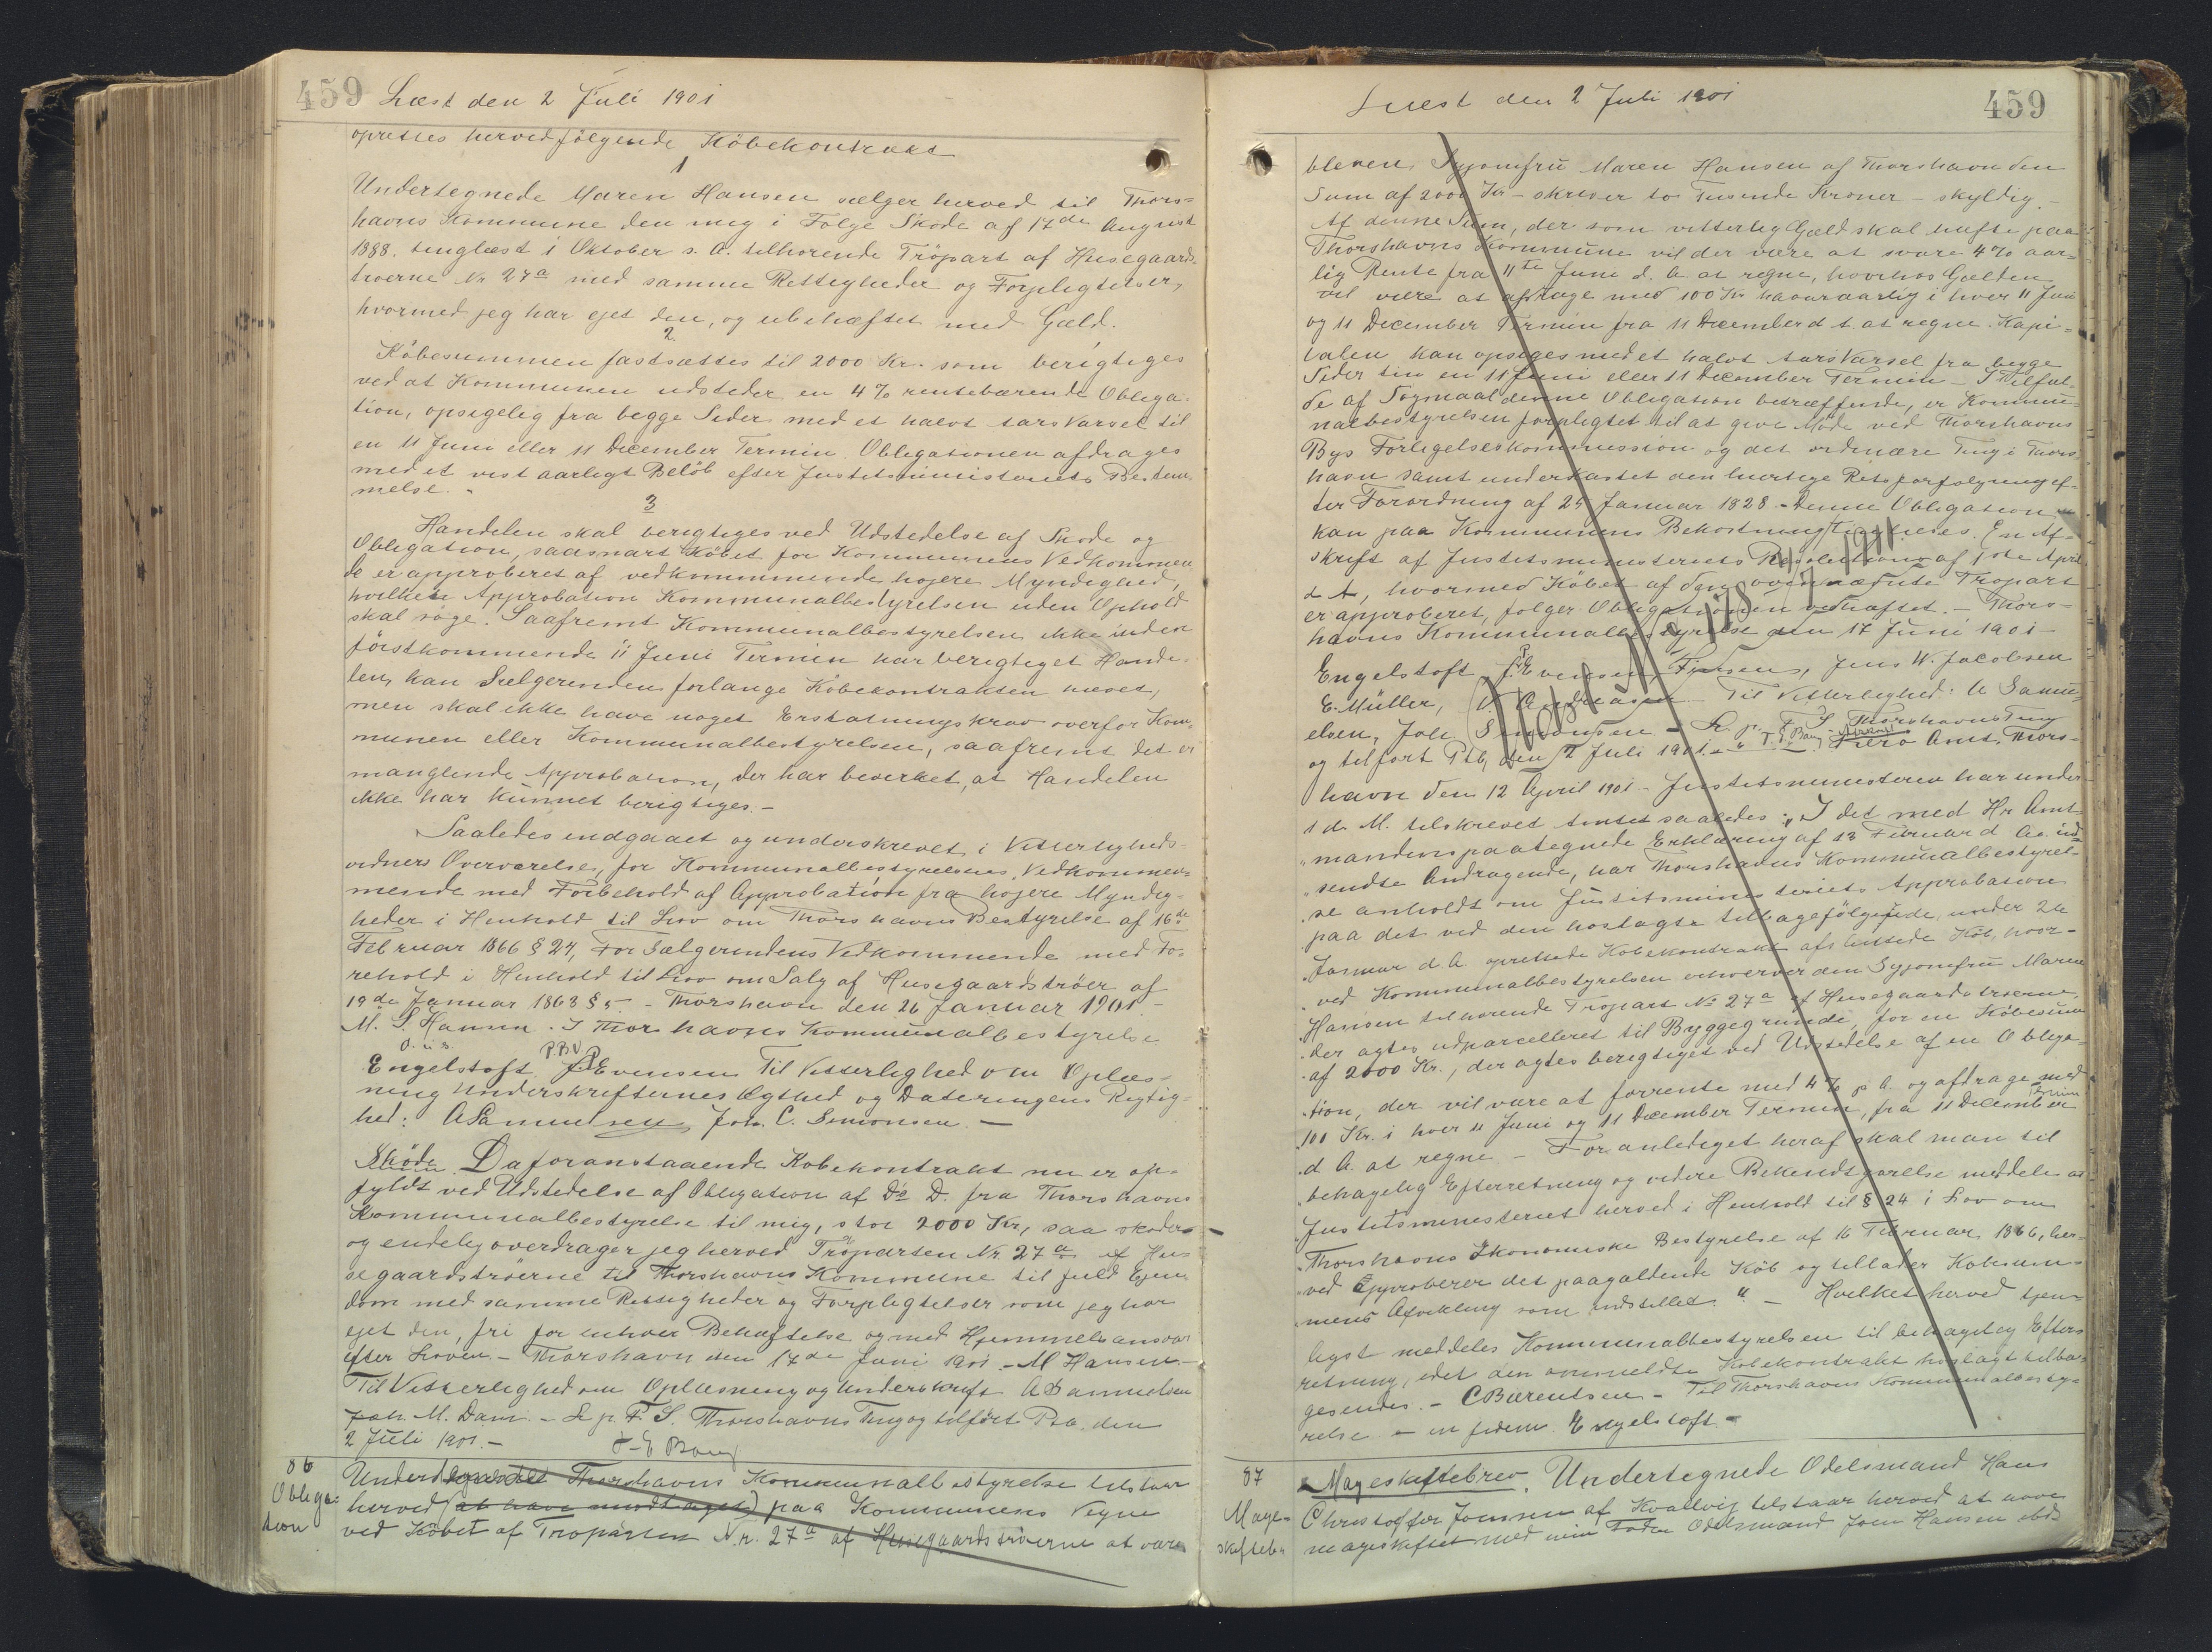 459 Læst den 2 Juli 1901
oprettes herved følgende Købekontrakt
1
Undertegnede Maren Hansen sælger herved til Thors=
havns Kommune den mig i Følge Skøde af 17de August
1888. tinglæst i Oktober s. A. tilhørende Tröpart af Husegaards
trøerne Nr 27a med samme Rettigheder og Forpligtelser,
hvormed jeg har ejet den, og ubehæftet med Gæld.
2.
Købesummen fastsættes til 2000 Kr. som berigtiges
ved at Kommunen udsteder en 4% rentebærende Obliga-
tion, opsigelig fra begge Sider med et halvt Aars Varsel til
en 11 Juni eller 11 December Termin. Obligationen afdrages
med et vist aarligt Beløb efter Justitsministeriets Bestem
melse. -
3
Handelen skal berigtiges ved Udstedelse af Skøde og
Obligation, saasnart Købet for Kommunens Vedkommen
de er approberet af vedkommende højere Myndighed,
hvilken Approbation Kommunalbestyrelsen uden Ophold
skal søge. Saafremt Kommunalbestyrelsen ikke inden
förstkommende 11 Juni Termin har berigtiget Hande-
len, kan Sælgerinden forlange Købekontrakten hævet,
men skal ikke have noget Erstatningskrav overfor Kom-
munen eller Kommunalbestyrelsen, saafremt det er
manglende Approbation, der har bevirket, at Handelen
ikke har kunnet berigtiges. -
Saaledes indgaaet og underskrevet i Vitterligheds-
vidners Overværelse, for Kommunalbestyrelsens Vedkommen-
mende med Forbehold af Approbation fra højere Myndig-
heder i Henhold til Lov om Thorshavns Bestyrelse af 16de
Februar 1866 § 24, For Sælgerindens Vedkommende med Fo-
rehold i Henhold til Lov om Salg af Husegaardstrøer af
19de Januar 1863 § 5 - Thorshavn den 26 Januar 1901 -
M. S. Hansen. I Thorshavns Kommunalbestyrelse
Engelstoft P. Evensen Til Vitterlighed om Oplæs-
ning Underskrifternes Ægthed og Dateringens Rigtig-
hed: A Samuelsen Joh. C. Simonsen. -
Skøde. Da foranstaaende Købekontrakt nu er op-
fyldt ved Udstedelse af Obligation af D.s D. fra Thorshavns
Kommunalbestyrelse til mig, stor 2000 Kr, saa skøder
og endelig overdrager jeg herved Tröparten Nr. 27a af Hu-
segaardströerne til Thorshavns Kommune til fuld Ejen-
dom med samme Rettigheder og Forpligtelser som jeg har
ejet den, fri for enhver Behæftelse og med Hjemmelsansvar
efter Loven. - Thorshavn den 17de Juni 1901. - M Hansen -
Til Vitterlighed om Oplæsning og Underskrift A Samuelsen
Joh. M. Dam. - L. p. F. S. Thorshavns Ting og tilført Ptb. den
2 Juli 1901. -
86
Obliga=
tion
Undertegnede Thorshavns Kommunalbestyrelse tilstaar
herved (at have modtaget) paa Kommunens Vegne
ved Købet af Tröparten Nr. 27a af Husegaardströerne at være
Læst den 2 Juli 1901 459
bleven Syjomfru Maren Hansen af Thorshavn den
Sum af 2000 Kr - skriver to Tusende Kroner - skyldig. -
Af denne Sum, der som vitterlig Gæld skal hæfte paa
Thorshavns Kommune vil der være at svare 4% aar-
lig Rente fra 11te Juni d. A. at regne, hvorhos Gælden
vil være at afdrage med 100 Kr halvaarlig i hver 11 Juni
og 11 December Termin fra 11 December d A. at regne. Kapi=
talen kan opsiges med et halvt Aars Varsel fra begge
Sider til en 11 Juni eller 11 December Termin - I Tilfæl-
de af Søgmaal denne Obligation betræffende, er Kommu-
nalbestyrelsen forpligtet til at give Møde ved Thorshavns
Bys Forligelseskommission og det ordinære Ting i Thors-
havn samt underkastet den hurtige Retsforfølgning ef-
ter Forordning af 25 Januar 1828 - Denne Obligation
kan paa Kommunens Bekostning tinglæses. En Af-
skrift af Justitsministeriets Resolution af 1ste April
d A, hvormed Købet af den ovennævnte Tröpart
er approberet, følger Obligationen vedhæftet. - Thors-
havns Kommunalbestyrelse den 17 Juni 1901 -
Engelstoft, P. Evensen, Finsen, Jens W. Jacobsen
E. Müller, Til Vitterlighed: A Samu-
elsen, Joh. Simonsen - L. p. F. S. Thorshavns Ting
og tilført Ptb, den 2 Juli 1901. - Færø Amt. Thors-
havn den 12 April 1901 - Justitsministeren har under
1 d. M. tilskrevet Amtet saaledes: „I det med Hr Amt-
„mandens paategnede Erklæring af 13 Februar d Aa. ind-
„sendte Andragende, har Thorshavns Kommunalbestyrel-
„se anholdt om Justitsministeriets Approbation
„paa det ved den hoslagte tilbagefølgende, under 26
„Januar d. A. oprettede Købekontrakt afsluttede Køb, hvor-
„ved Kommunalbestyrelsen erhverver den Syjomfru Maren
„Hansen tilhørende Tröpart № 27a af Husegaardströerne,
„der agtes udparcelleret til Byggegrunde, for en Købesum
„af 2000 Kr., der agtes berigtiget ved Udstedelse af en Obliga-
„tion, der vil være at forrente med 4% p A. og afdrage med
„100 Kr. i hver 11 Juni og 11 December Termin, fra 11 December Termin
„d A. at regne - Foranlediget heraf skal man til
„behagelig Efterretning og videre Bekendtgørelse meddele at
„Justitsministeriet herved i Henhold til § 24 i Lov om
„Thorshavns Økonomiske Bestyrelse af 16 Februar, 1866, her-
„ved Approberer det paagældende Køb og tillader Købesum-
„mens Afvikling som indstillet." - Hvilket herved tjenst-
ligst meddeles Kommunalbestyrelsen til behagelig Efter-
retning, idet den ommeldte Købekontrakt hoslagt tilba-
gesendes. - C Bærentsen - Til Thorshavns Kommunalbesty-
relse. - in fidem Engelstoft. -
87
Mage-
skifteb.
Mageskiftebrev. Undertegnede Odelsmand Hans
Christoffer Joensen af Kvalvig tilstaar herved at have
mageskiftet med min Fader Odelsmand Joen Hansen ibd